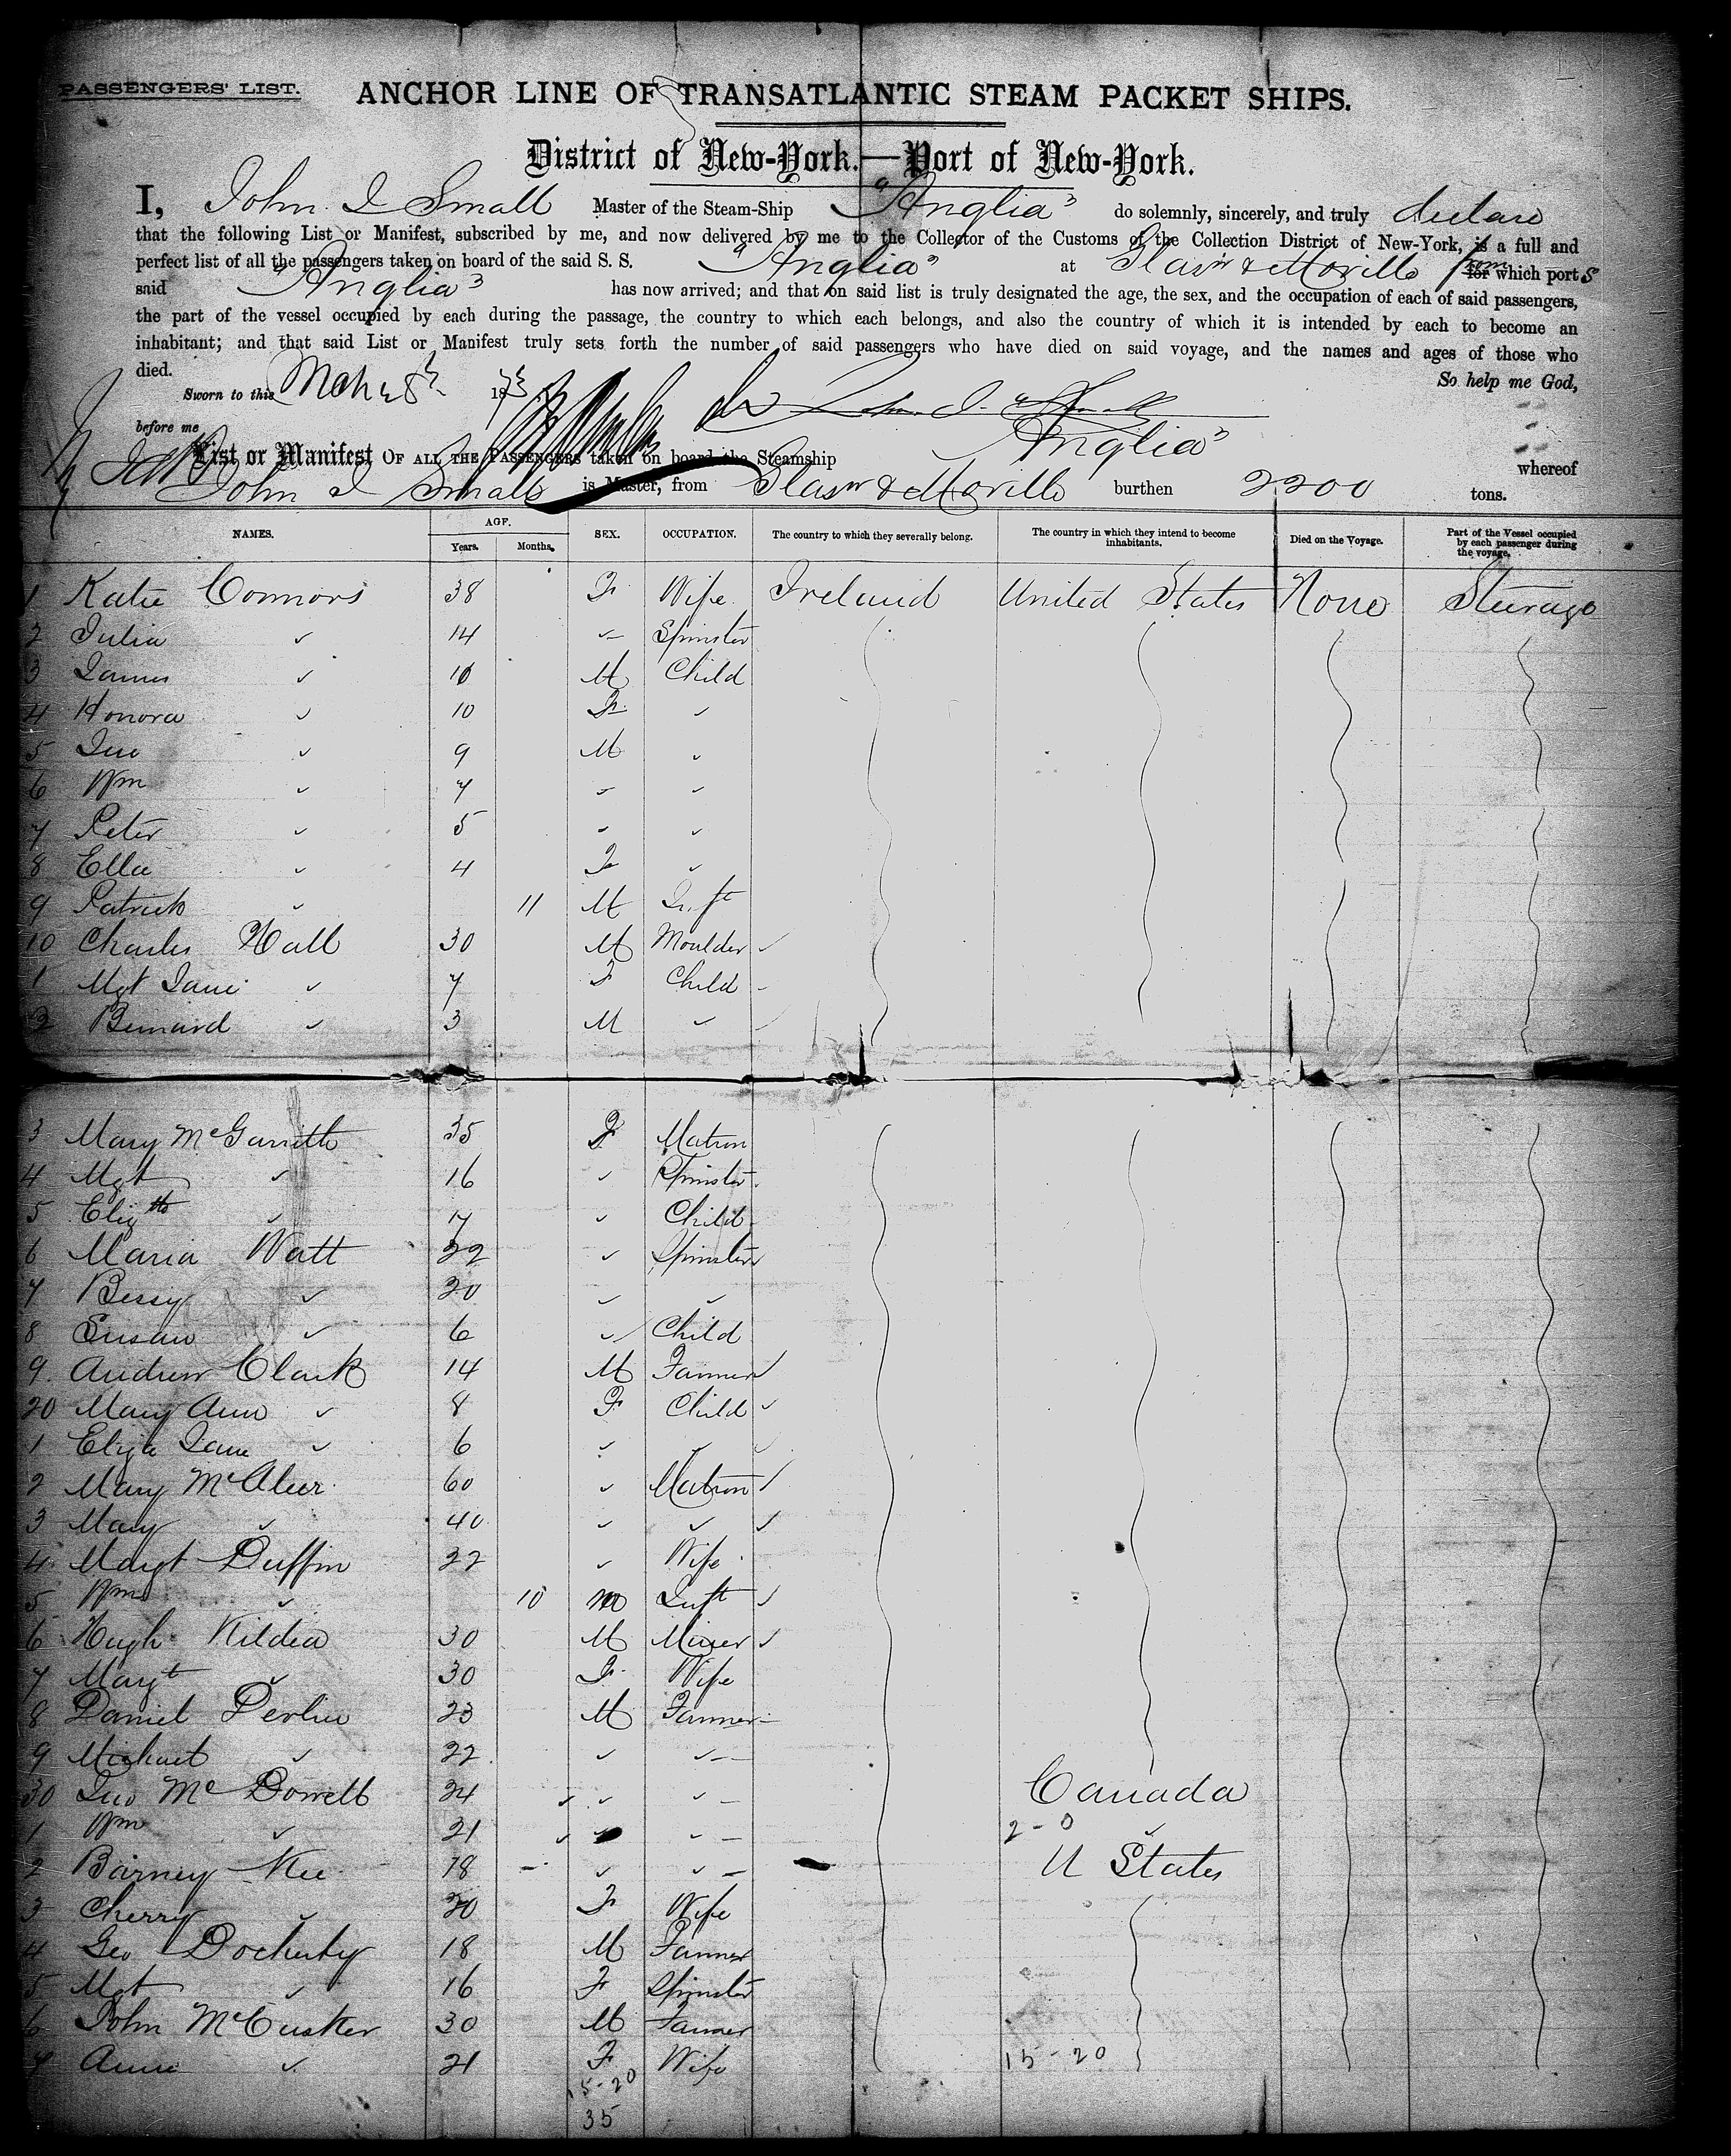 PASSENGERS' LIST.
ANCHOR LINE OF TRANSATLANTIC STEAM PACKET SHIPS.
District of New-York.—Port of New-York.
I, John I Small Master of the Steam-Ship "Anglia" do solemnly, sincerely, and truly declare
that the following List or Manifest, subscribed by me, and now delivered by me to the Collector of the Customs of the Collection District of New-York, is a full and
perfect list of all the passengers taken on board of the said S. S. "Anglia" at Glasw & Moville from for which ports
said "Anglia" has now arrived; and that on said list is truly designated the age, the sex, and the occupation of each of said passengers,
the part of the vessel occupied by each during the passage, the country to which each belongs, and also the country of which it is intended by each to become an
inhabitant; and that said List or Manifest truly sets forth the number of said passengers who have died on said voyage, and the names and ages of those who
died. So help me God,
Sworn to this Mch 1873
before me
List or Manifest OF ALL THE PASSENGERS taken on board the Steamship Anglia" whereof
John I Small is Master, from Glasw & Moville burthen 2200 tons.
NAMES. AGE. Years. Months. SEX. OCCUPATION. The country to which they severally belong. The country in which they intend to become inhabitants. Died on the Voyage. Part of the Vessel occupied by each passenger during the voyage.
1 Katie Connors 38 F Wife Ireland United States None Steerage
2 Julia ✓ 14 ✓ Spinster
3 James ✓ 10 M Child
4 Honora ✓ 10 F ✓
5 Jno ✓ 9 M ✓
6 Wm ✓ 7 ✓ ✓
7 Peter ✓ 5 ✓ ✓
8 Ella ✓ 4 F ✓
9 Patrick ✓ 11 M Inft
10 Charles Hall 30 M Moulder ✓
1 Mgt Jane ✓ 7 F Child
2 Bernard ✓ 3 M ✓
3 Mary McGarrith 35 F Matron
4 Mgt ✓ 16 ✓ Spinster
5 Elizth ✓ 7 ✓ Child
6 Maria Watt 22 ✓ Spinster
7 Bessy ✓ 20 ✓ ✓
8 Susan ✓ 6 ✓ Child
9 Andrew Clark 14 M Farmer ✓
20 Mary Ann ✓ 8 F Child ✓
1 Eliza Jane ✓ 6 ✓ ✓ ✓
2 Mary McAleer 60 ✓ Matron ✓
3 Mary ✓ 40 ✓ ✓ ✓
4 Margt Duffin 22 ✓ Wife
5 Wm ✓ 10 M Inft ✓
6 Hugh Kildea 30 M Miner ✓
7 Margt ✓ 30 F Wife
8 Daniel Devlin 23 M Farmer
9 Michael ✓ 22 ✓ ✓
30 Jno McDowell 24 ✓ ✓ ✓ Canada
1 Wm ✓ 21 ✓ ✓ ✓ 2-0 ✓
2 Barney Kee 18 ✓ ✓ U States
3 Cherry ✓ 20 F Wife
4 Geo Docherty 18 M Farmer
5 Mgt ✓ 16 F Spinster
6 John McCusker 30 M Farmer
7 Annie ✓ 21 F Wife 15-20
15-20
35